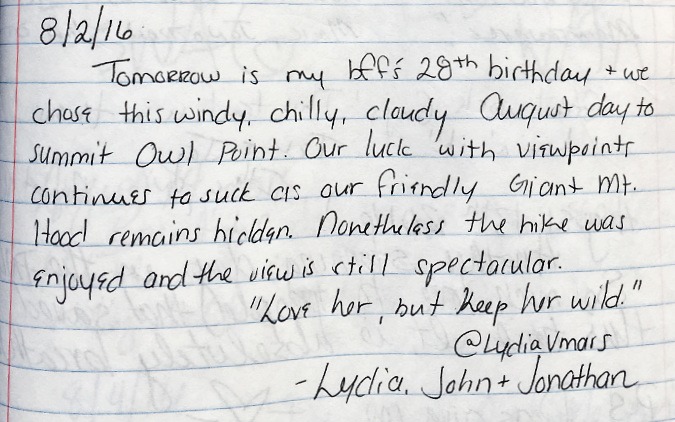 8/2/16
Tomorrow is my bff's 28th birthday + we
chose this windy, chilly, cloudy August day to
summit Owl Point. Our luck with viewpoints
continues to suck as our friendly Giant Mt.
Hood remains hidden. Nonetheless the hike was
enjoyed and the view is still spectacular.
"Love her, but keep her wild."
@LydiaVmars
- Lydia, John + Jonathan